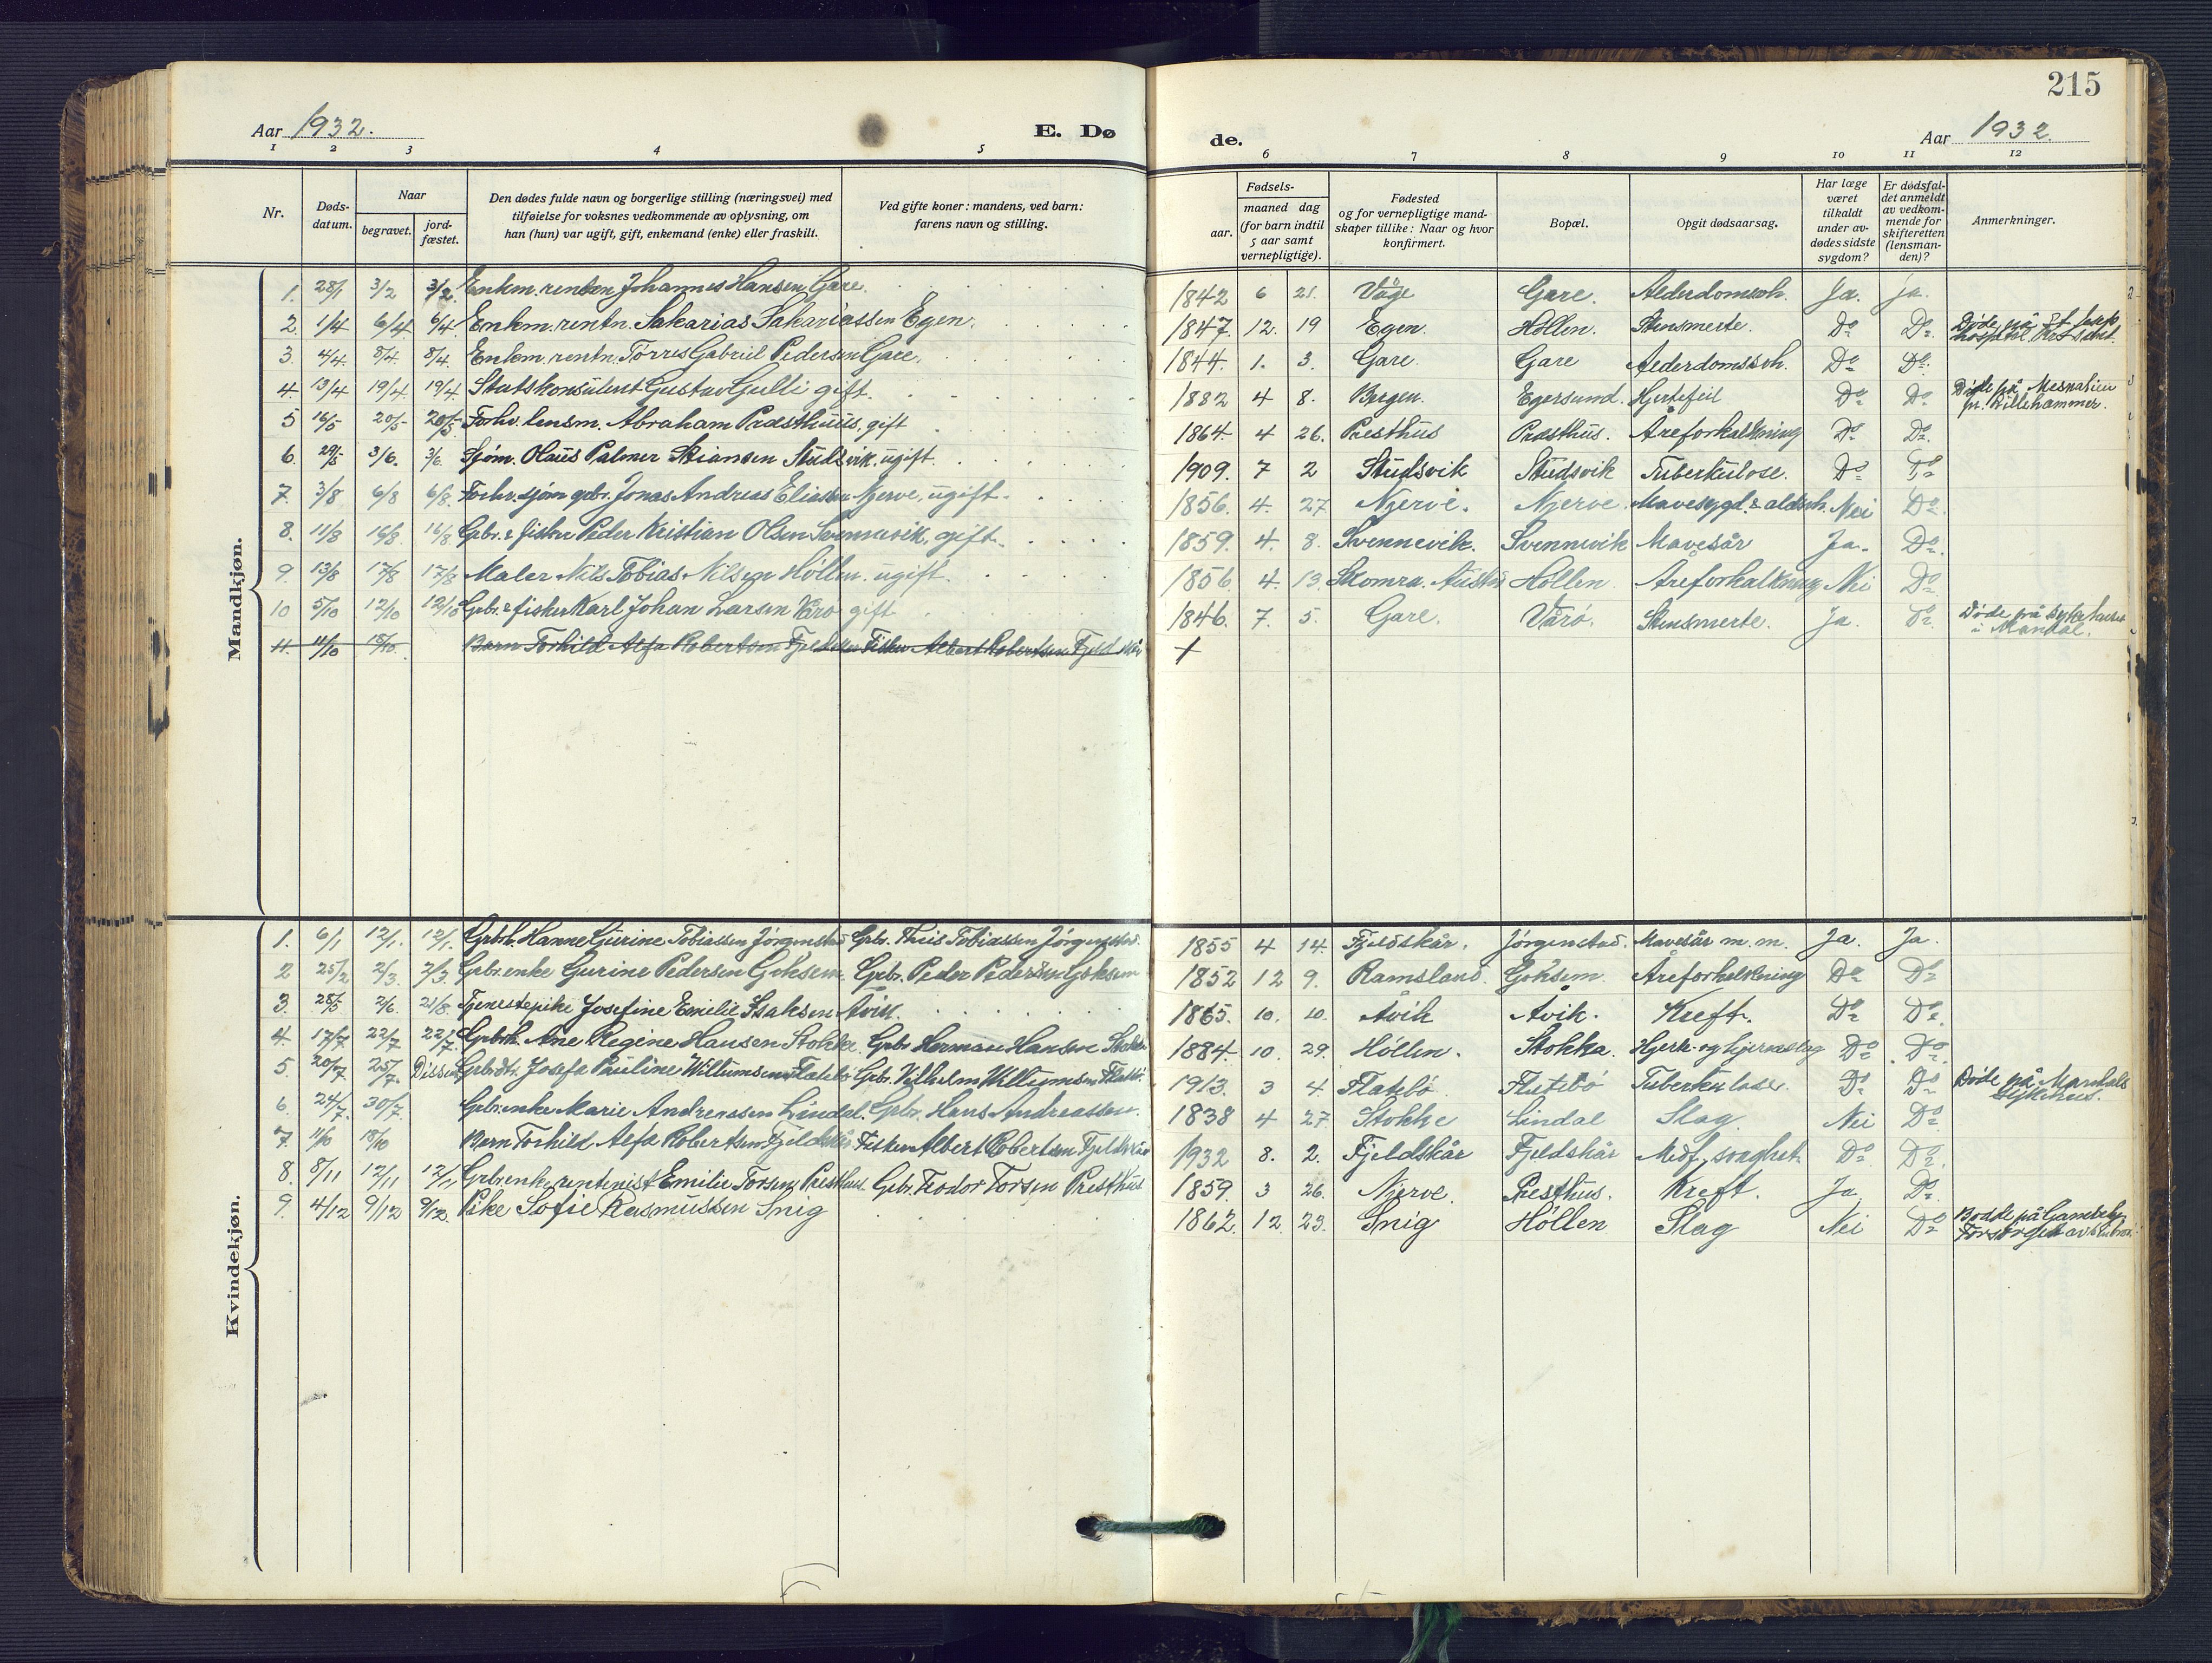 215
Aar 1932.
E. Dø
de.
Aar 1932.
1 2 3 4 5 6 7 8 9 10 11 12
Nr.
Døds-
datum.
Naar
begravet.
jord-
fæstet.
Den dødes fulde navn og borgerlige stilling (næringsvei) med
tilføielse for voksnes vedkommende av oplysning, om
han (hun) var ugift, gift, enkemand (enke) eller fraskilt.
Ved gifte koner: mandens, ved barn:
farens navn og stilling.
Fødsels-
aar.
maaned dag
(for barn indtil
5 aar samt
vernepligtige).
Fødested
og for vernepligtige mand-
skaper tillike: Naar og hvor
konfirmert.
Bopæl.
Opgit dødsaarsag.
Har læge
været
tilkaldt
under av-
dødes sidste
sygdom?
Er dødsfal-
det anmeldt
av vedkom-
mende for
skifteretten
(lensman-
den)?
Anmerkninger.
Mandkjøn.
1. 28/1 3/2 3/2. Enkm. rentn Johannes Hansen Gare. 1842 6 21. Våge Gare. Alderdomssch. Ja. ja.
2. 1/4 6/4 6/4 Enkm. rentn. Sakarias Sakariassen Egen. 1847. 12. 19 Egen. Høllen. Stensmerte. Do Do Døde på
hospital
3. 4/4. 8/4 8/4 Enkm. rentn. Tørres Gabriel Pedersen Gare. 1844. 1. 3. Gare. Gare Alderdomssch. Do Do
4. 13/4 19/4. 19/4 Statskonsulent Gustav Gulli gift. 1882 4 8. Bergen. Egersund. Hjertefeil Do Do Døde på Mesnalien
pr. Lillehammer.
5 16/5 20/5 20/5 Forhv. lensm. Abraham Præsthuus, gift 1864 4 26. Presthus Præsthus. Åreforkalkning Do Do
6. 29/5 3/6. 3/6 Sjøm. Olaus Palmer Stiansen Studsvik, ugift. 1909. 7 2 Studsvik Studsvik Tuberkulose. Do Do
7. 3/8 6/8 6/8. Forhv. sjøm gbr. Jonas Andreas Eliassen Njerve, ugift. 1856. 4. 27 Njerve. Njerve. Mavesygd. & aldersch. Nei Do
8. 11/8 16/8. 16/8 Gbr. & fisker Peder Kristian Olsen Svennevik, gift. 1859. 4. 8. Svennevik. Svennevik Mavesår Ja. Do
9. 13/8 17/8 17/8 Maler Nils Tobias Nilsen Høllen. ugift. 1856. 4. 13. Høllen Åreforkalkning Nei Do
10 5/10 12/10 12/10 Gbr. & fisker Karl Johan Larsen Vårø gift 1846. 7. 5. Gare. Vårø. Stensmerte. Ja. Do Døde på sykehuset
i Mandal.
11. 11/10 18/10. Barn Torhild Alfa Robertsen Fjeldskår Fisker Albert Robertsen Fjeldskår +
Kvindekjøn.
1. 6/1 12/1. 12/1. Gbrh. Hanne Gurine Tobiassen Jørgenstad Gbr. Thiis Tobiassen Jørgenstad. 1855 4 14. Fjeldskår. Jørgenstad. Mavesår m. m. Ja. Ja.
2 25/2 2/3 2/3. Gbr. enke Gurine Pedersen Goksem. Gbr. Peder Pedersen Goksem 1852 12 9. Ramsland. Goksem. Åreforkalkning Do Do
3. 28/5 2/6. 21/8. Tjenestepike Josefine Emilie Isaksen Åvik. 1865. 10. 10. Åvik Åvik. Kreft. Do Do
4 17/7 22/7 22/7. Gbrh. Ane Regine Hansen Stokke. Gbr Herman Hansen Stokke 1884. 10. 29. Høllen. Stokka. Hjerte- og hjerneslag Do Do
5. 20/7 25/7. Gbrdtr. Josefa Pauline Willumsen Flatebø Gbr. Vilhelm Willumsen Flatebø. 1913. 3 4. Flatebø. Flatebø Tuberkulose. Do Do Døde på Mandals
Sykehus.
6. 24/7 30/7. Gbr. enke Marie Andreassen Lindal. Gbr. Hans Andreassen. 1838 4 27. Stokke Lindal Slag. Nei Do
7. 11/10 18/10 Barn Torhild Alfa Robertsen Fjeldskår Fisker Albert Robertsen Fjeldskår 1932 8. 2. Fjeldskår Fjeldskår Medf. svaghet. Do Do
8. 8/11 12/11 12/11 Gbr. enke rentenist Emilie Torsen Presthus. Gbr. Teodor Torsen Presthus 1859. 3 26. Njerve. Presthus. Kreft. Ja Do
9. 4/12 9/12 9/12. Pike Sofie Rasmussen Snig 1862. 12 23. Snig Høllen Slag Nei Do Bodde på Gamlehj.
Forsørget av